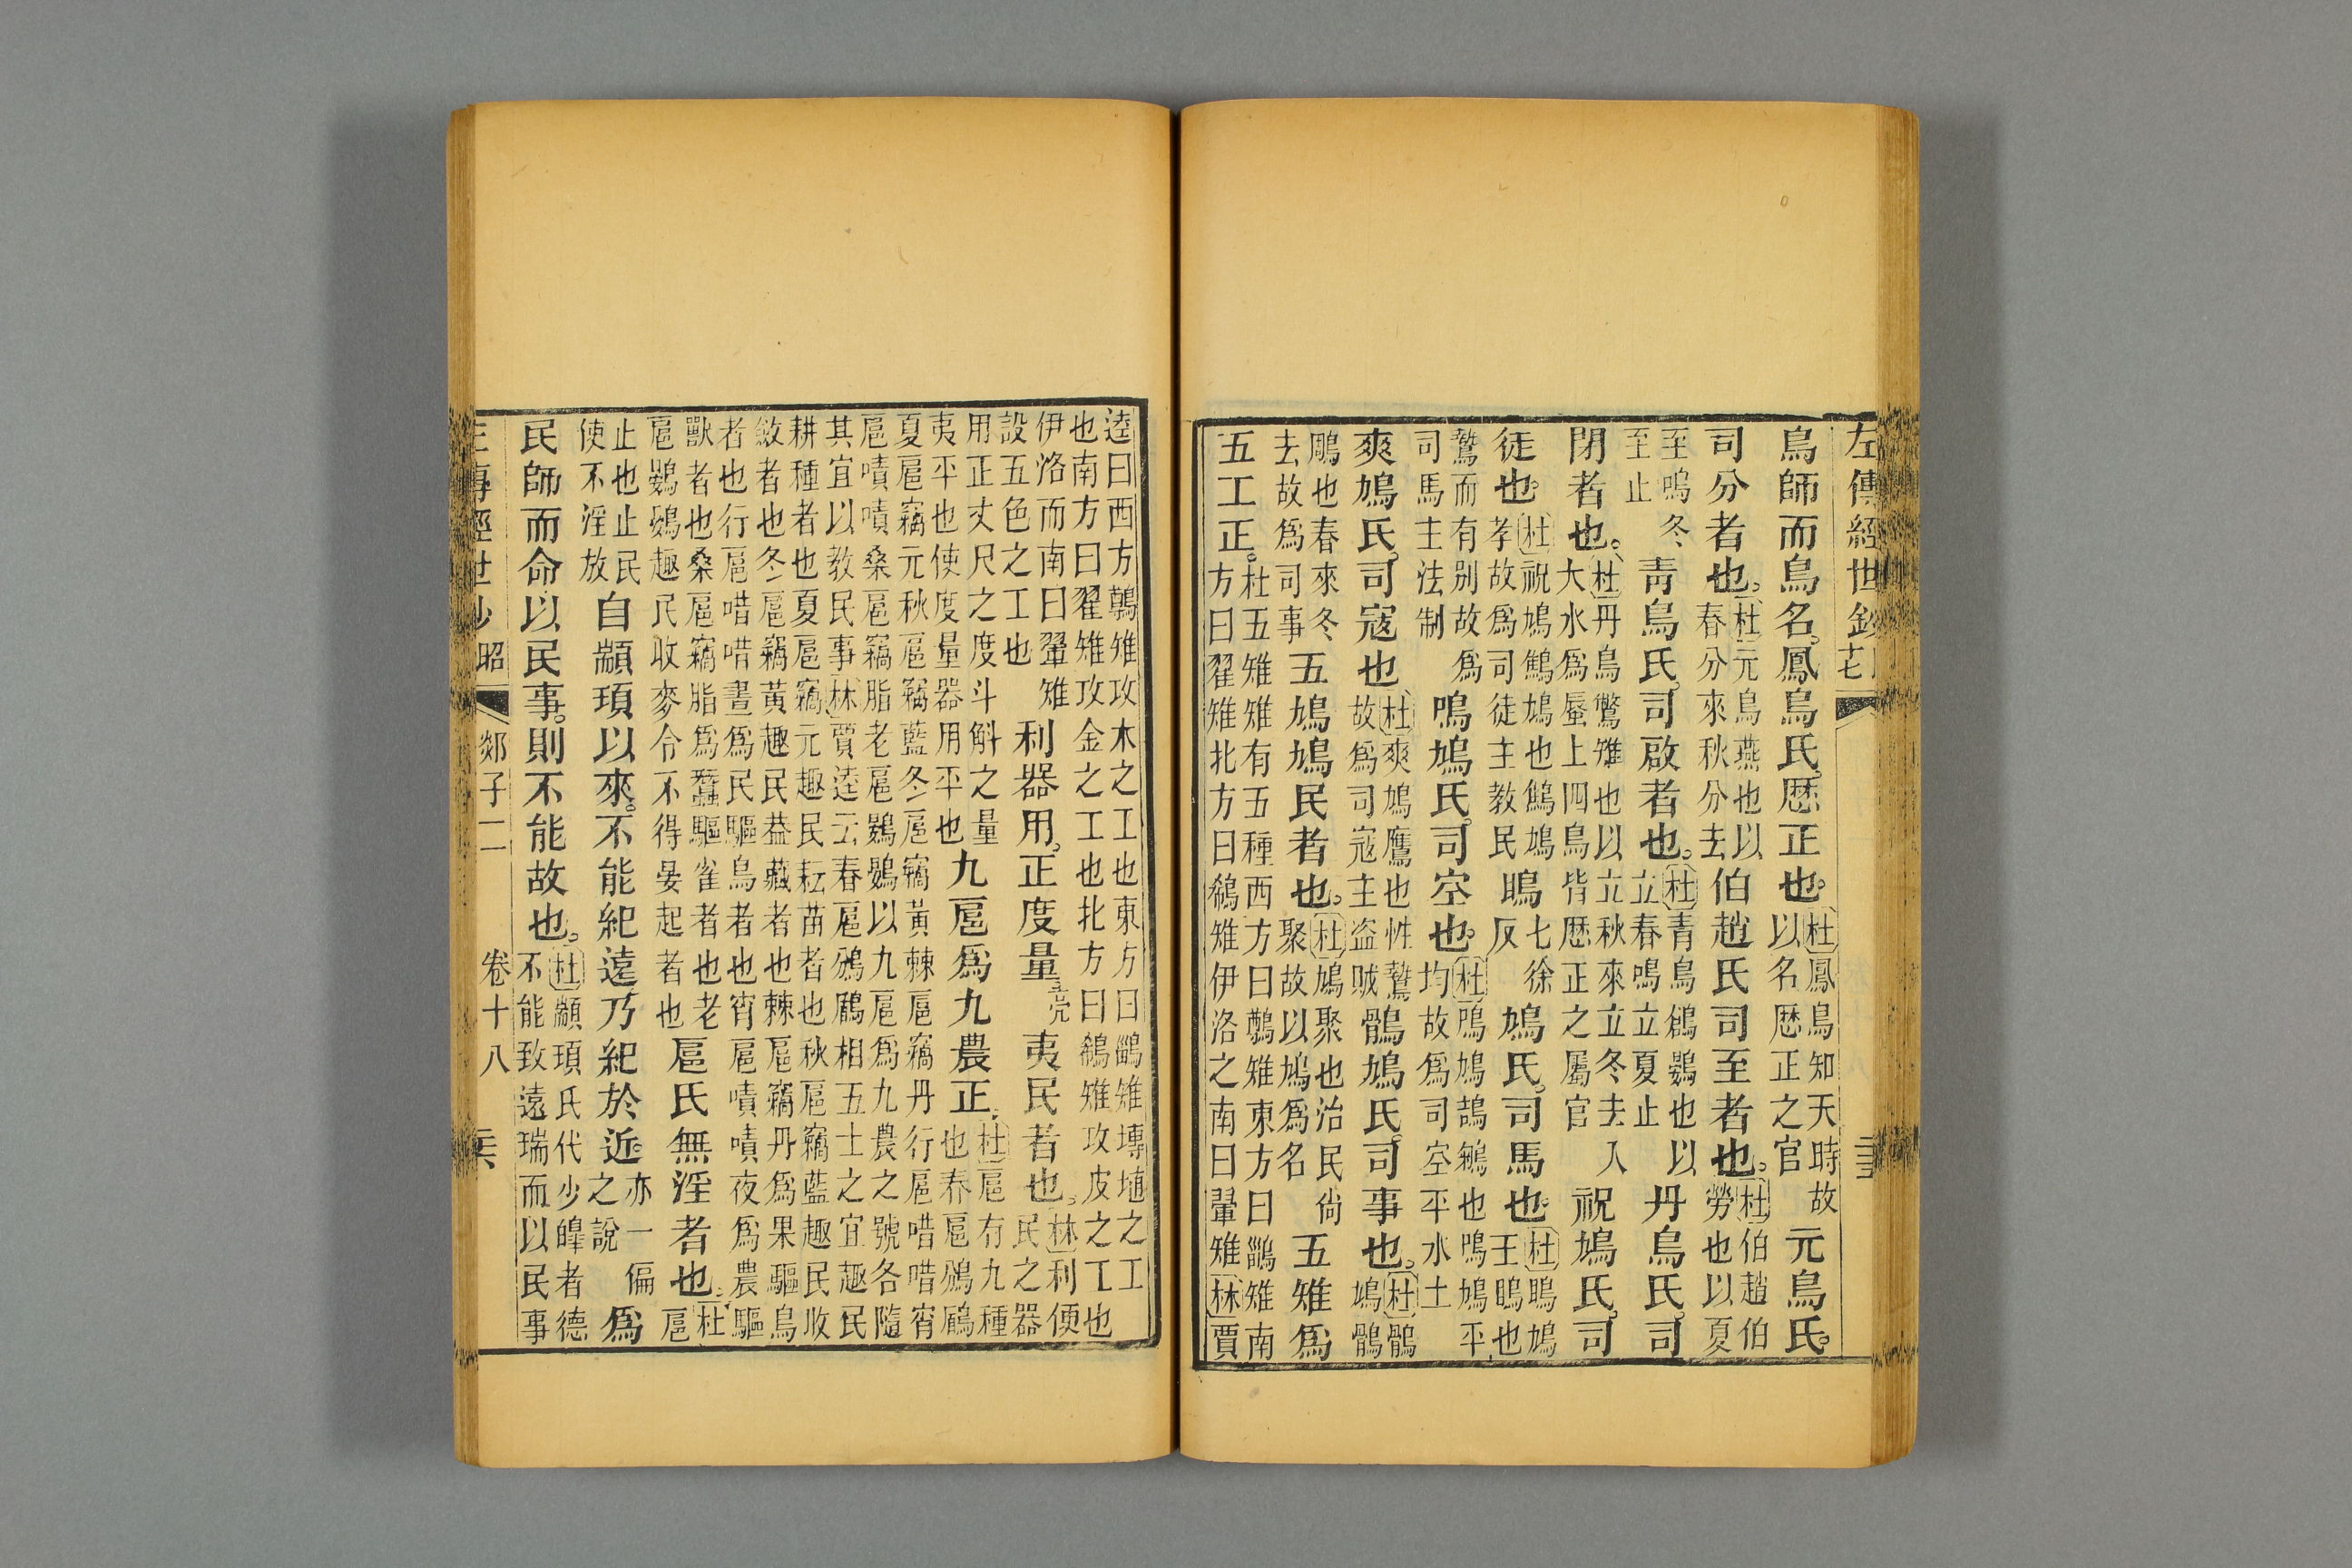 左傳經世鈔
鳥師而鳥名。鳳鳥氏。歷正也。杜鳳鳥知天時故以名歷正之官元鳥氏。
司分者也。杜元鳥燕也以春分來秋分去伯趙氏司至者也。杜伯趙伯勞也以夏
至鳴冬至止青鳥氏。司啟者也。杜青鳥鶬鷃也以立春鳴立夏止丹鳥氏。司
閉者也。杜丹鳥鷩雉也以立秋來立冬去入大水爲蜃上四鳥皆歷正之屬官祝鳩氏。司
徒也。杜祝鳩鷦鳩也鷦鳩孝故爲司徒主教民鴡七徐反鳩氏。司馬也。杜鴡鳩王鴡也
鷙而有別故爲司馬主法制鳲鳩氏。司空也。杜鳲鳩鴶鵴也鳲鳩平均故爲司空平水土
爽鳩氏。司寇也杜爽鳩鷹也性鷙故爲司寇主盜賊鶻鳩氏。司事也。杜鶻鳩鶻
鵰也春來冬去故爲司事五鳩鳩民者也。杜鳩聚也治民尙聚故以鳩爲名五雉爲
五工正。杜五雉雉有五種西方曰鷷雉東方曰鶅雉南方曰翟雉北方曰鵗雉伊洛之南曰翬雉林賈
逵曰西方鷷雉攻木之工也東方曰鶅雉摶埴之工也南方曰翟雉攻金之工也北方曰鵗雉攻皮之工也
伊洛而南曰翬雉設五色之工也利器用。正度量夷民者也。林利便民之器
用正丈尺之度斗斛之量夷平也使度量器用平也九扈爲九農正。杜扈有九種也春扈鳻鶞
夏扈竊元秋扈竊藍冬扈竊黃棘扈竊丹行扈唶唶宵扈嘖嘖桑扈竊脂老扈鷃鷃以九扈爲九農之號各隨
其宜以教民事林賈逵云春扈鳻鶞相五土之宜趣民耕種者也夏扈竊元趣民耘苗者也秋扈竊藍趣民收
斂者也冬扈竊黃趣民葢藏者也棘扈竊丹爲果驅鳥者也行扈唶唶晝爲民驅鳥者也宵扈嘖嘖夜爲農驅
獸者也桑扈竊脂爲蠶驅雀者也老扈鷃鷃趣民收麥令不得晏起者也扈氏無淫者也。杜扈
止也止民使不淫放自顓頊以來。不能紀遠乃紀於近亦一偏之說爲
民師而命以民事。則不能故也。杜顓頊氏代少皥者德不能致遠瑞而以民事
昭 郯子二 卷十八